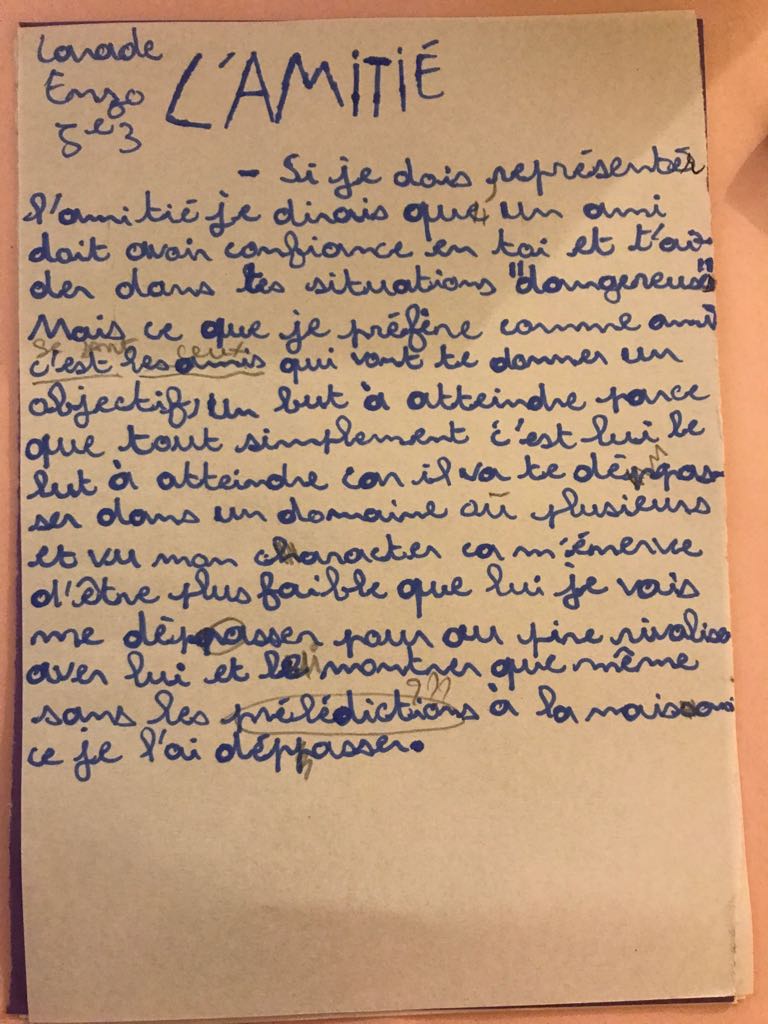 Larade
Enzo
5e3
L'AMITIÉ
- Si je dois représenter
l'amitié je dirais que, un ami
doit avoir confiance en toi et t'ai-
der dans tes situations "dangereuses"
Mais ce que je préfère comme ami
se sont ceux
c'est les amis qui vont te donner un
objectif, un but à atteindre parce
que tout simplement c'est lui le
but à atteindre car il va te dép
ser dans un domaine ou plusieurs
et vu mon character ca m'énerve
d'être plus faible que lui je vais
me déppasser pour au pire rivaliser
aver lui et montrer que même
???
sans les prélédictions à la naissan
ce je l'ai déppasser.